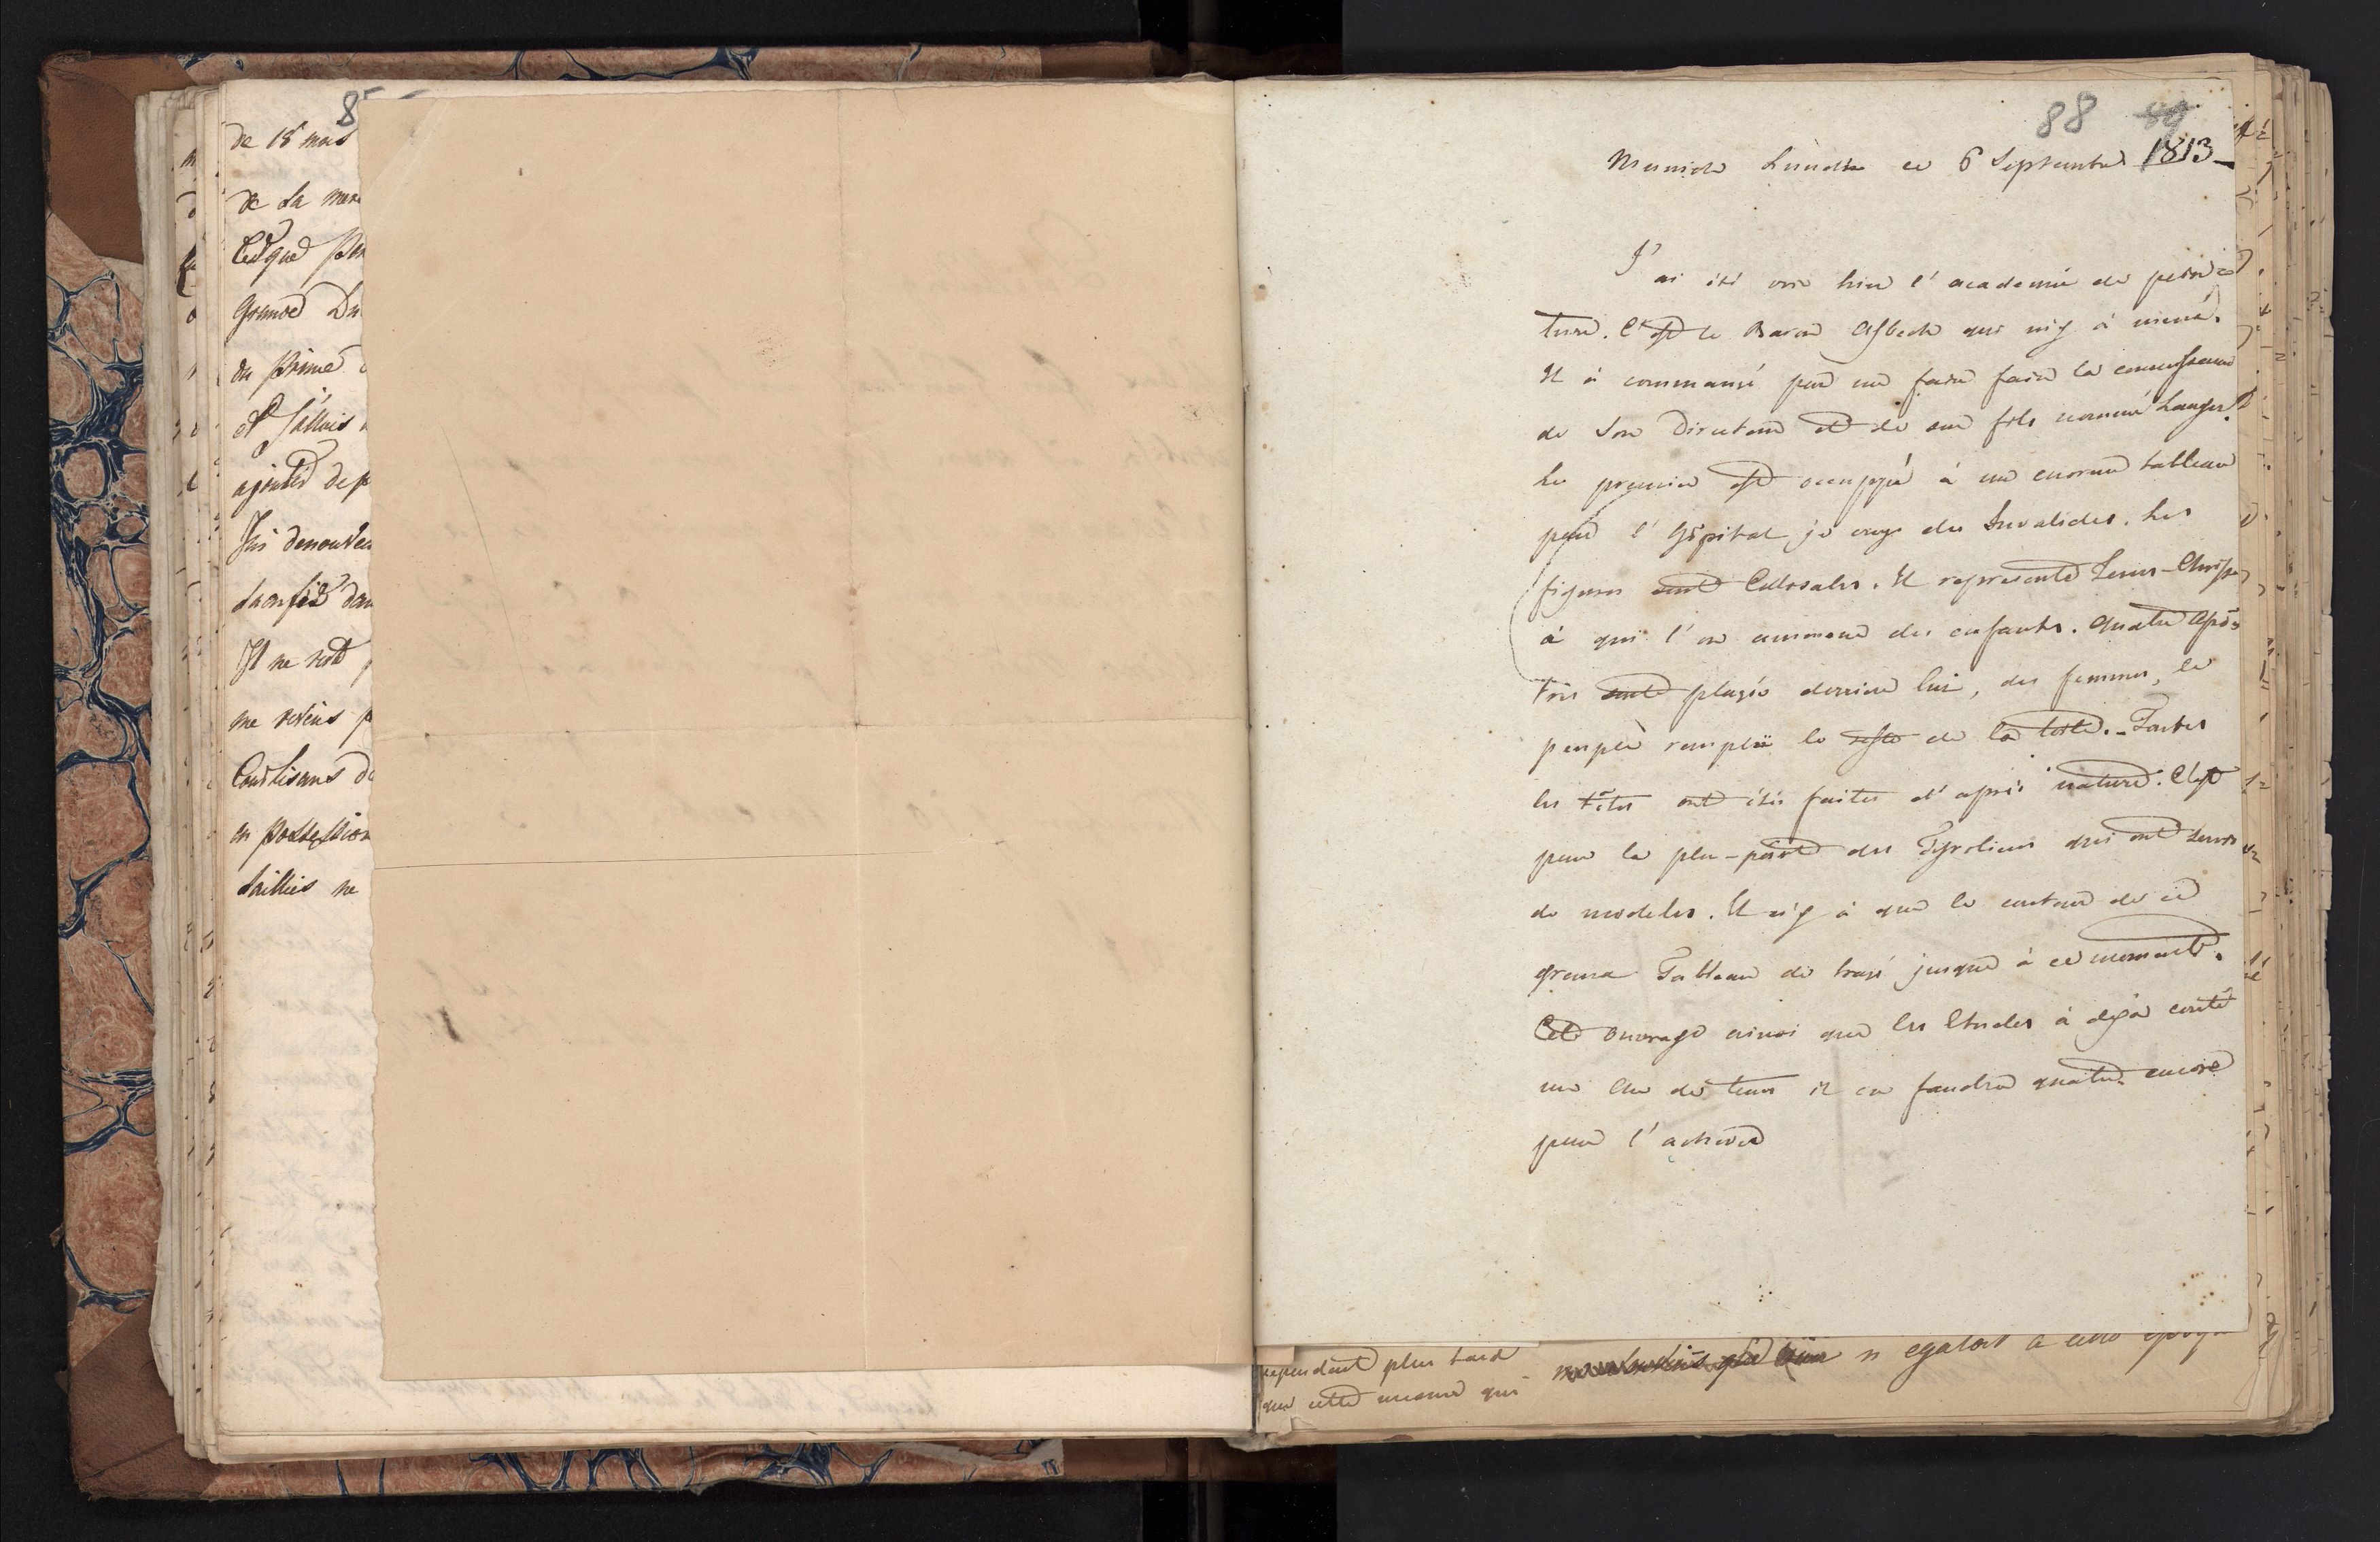 85
de 18 mois
de la mere
Cesque
Grande Du
du prime
et fallois
ajoutés de p
J'ai denouveau
Il ne reste
me reviens p
Courtisans de
en possession
saillies ne
88 89
Munich Lundi ce 6 Septembre 1813
J'ai été voir hier l'academie de pein=
ture. C'est le Baron Asbeck qui m'y à mené.
Il à commancé par me faire faire la connaissance
de son Directeur et de son fils nommé Langer.
Le premier est occuppé à un enorme tableau
pour l'Hôpital, je crois des Invalides. Les
figures sont Collosales. Il represente Jesus-Christ
à qui l'on ammene des enfants. Quatre Apô=
tres sont plasés derriere lui, des femmes, le
peuple remplis le reste de la toile. Toutes
les têtes ont étés faites d'après nature. C'est
pour la plu-part des Tyroliens qui ont servis
de modeles. Il n'y à que le contour de ce
grand Tableau de trasé jusque à ce moment.
Cet ouvrage ainsi que les Etudes à déjà couté
un An de tems il en faudra quatre encore
pour l'achever
cependant plus tard n'egaloit à cette époque
que cette mesme qui